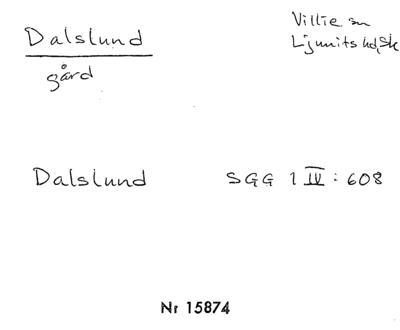 Dalslund
gård
Villie sn
Ljunits hd, Sk
Dalslund
SGG 1 IV : 608
Nr 15874